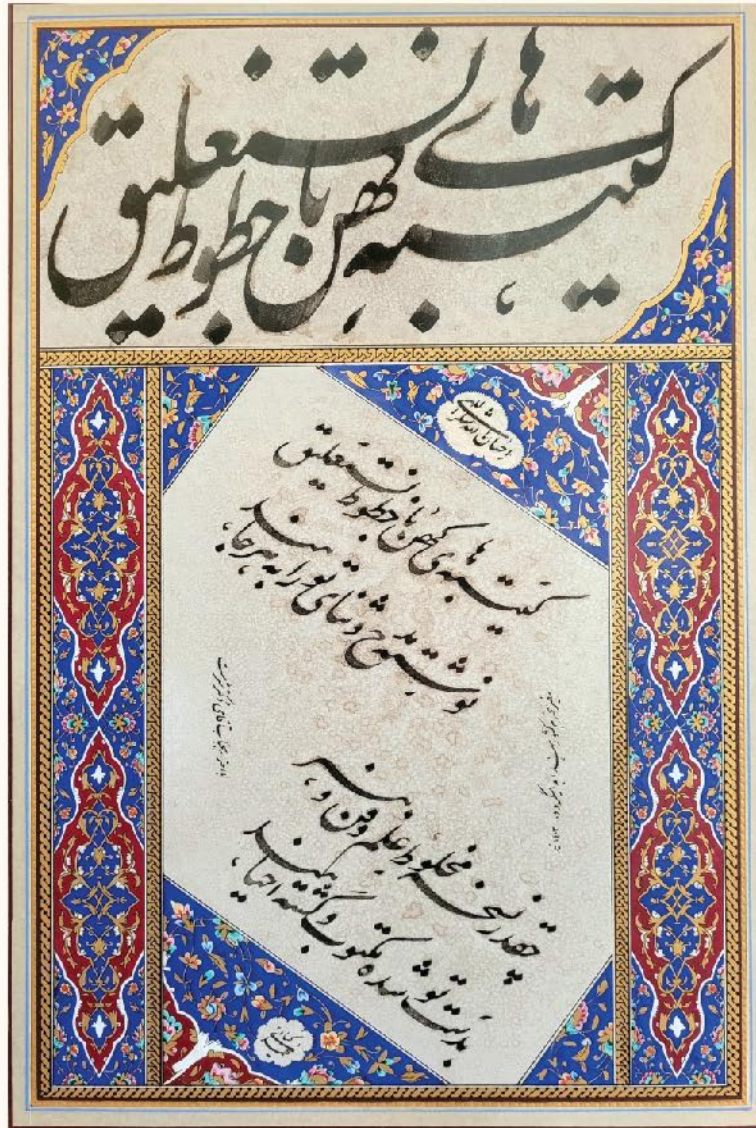 کتیبه های کهن با خطوط نستعلیق
کتیبه های کهن با خطوط نستعلیق
نوشته مدح و ثنای تو را به هر جا، هند
چقدر نسخه مخطوط علم و فن و هنر
بدست تو شده مکتوب و گشته احیا، هند